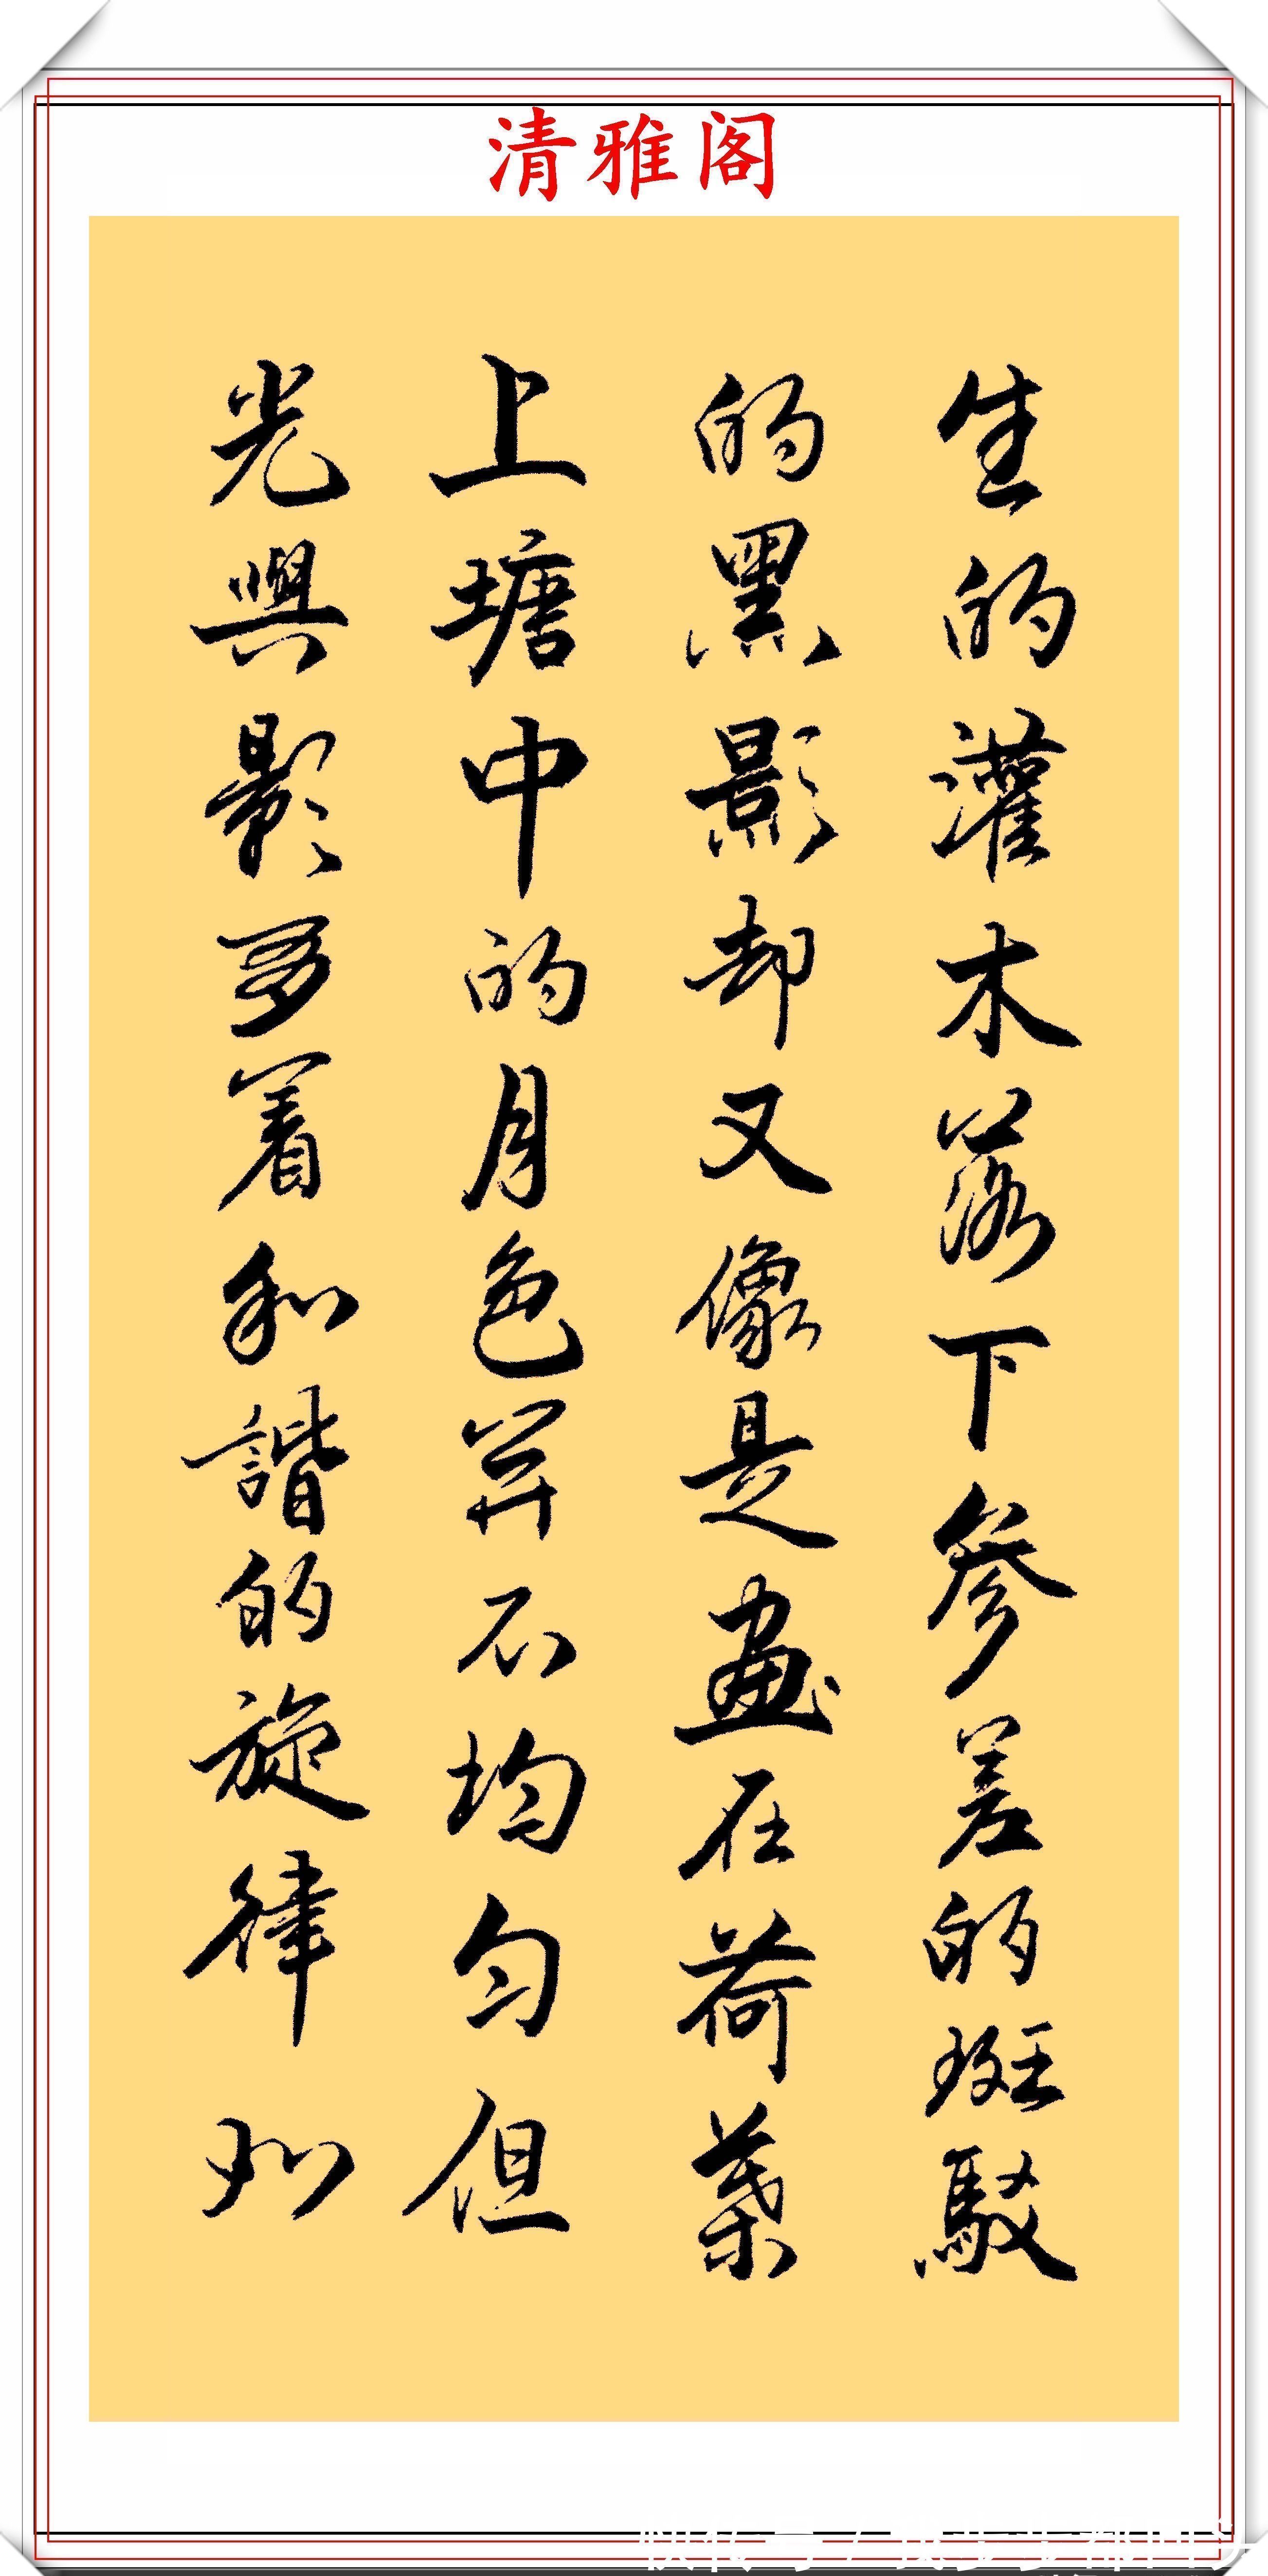 清雅阁
生的灌木落下參差的斑駁
的黑影却又像是畫在荷葉
上塘中的月色并不均勻但
光與影多着和諧的旋律如